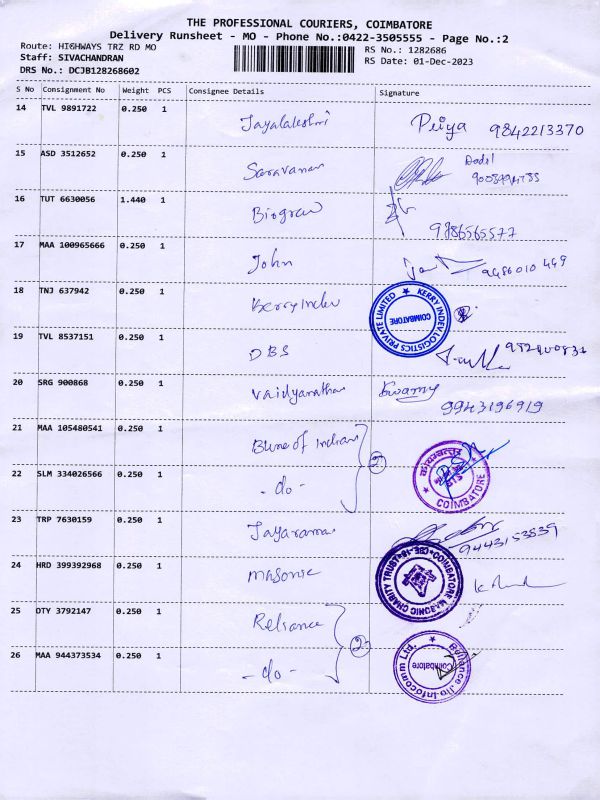 THE PROFESSIONAL COURIERS, COIMBATORE
Delivery Runsheet - MO - Phone No.:0422-3505555 - Page No.:2
Route: HIGHWAYS TRZ RD MO
RS No.: 1282686
Staff: SIVACHANDRAN
RS Date: 01-Dec-2023
DRS No.: DCJB128268602
S No Consignment No Weight PCS Consignee Details Signature
14 TVL 9891722 0.250 1 Jayalakshmi Priya 9842213370
15 ASD 3512652 0.250 1 Saravanan
16 TUT 6630056 1.440 1 9786565577
17 MAA 100965666 0.250 1 John 9486010449
18 TNJ 637942 0.250 1 Kerry Indev KERRY INDEV LOGISTICS PRIVATE LIMITED COIMBATORE
19 TVL 8537151 0.250 1 DBS
20 SRG 900868 0.250 1 Vaidyanathan Swamy 9943196919
21 MAA 105480541 0.250 1 of Indian 2 COIMBATORE
22 SLM 334026566 0.250 1 - do -
23 TRP 7630159 0.250 1 Jayarama 9443153839
24 HRD 399392968 0.250 1 Masonic COIMBATORE MASONIC CHARITY TRUST
25 OTY 3792147 0.250 1 Reliance 2 Reliance Jio Infocomm Ltd. Coimbatore
26 MAA 944373534 0.250 1 - do -